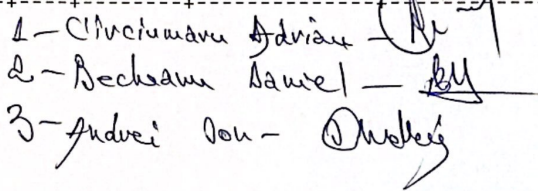 1 - Cîrciumaru Adrian -
2 - Becheanu Daniel -
3 - Andrei Ion -